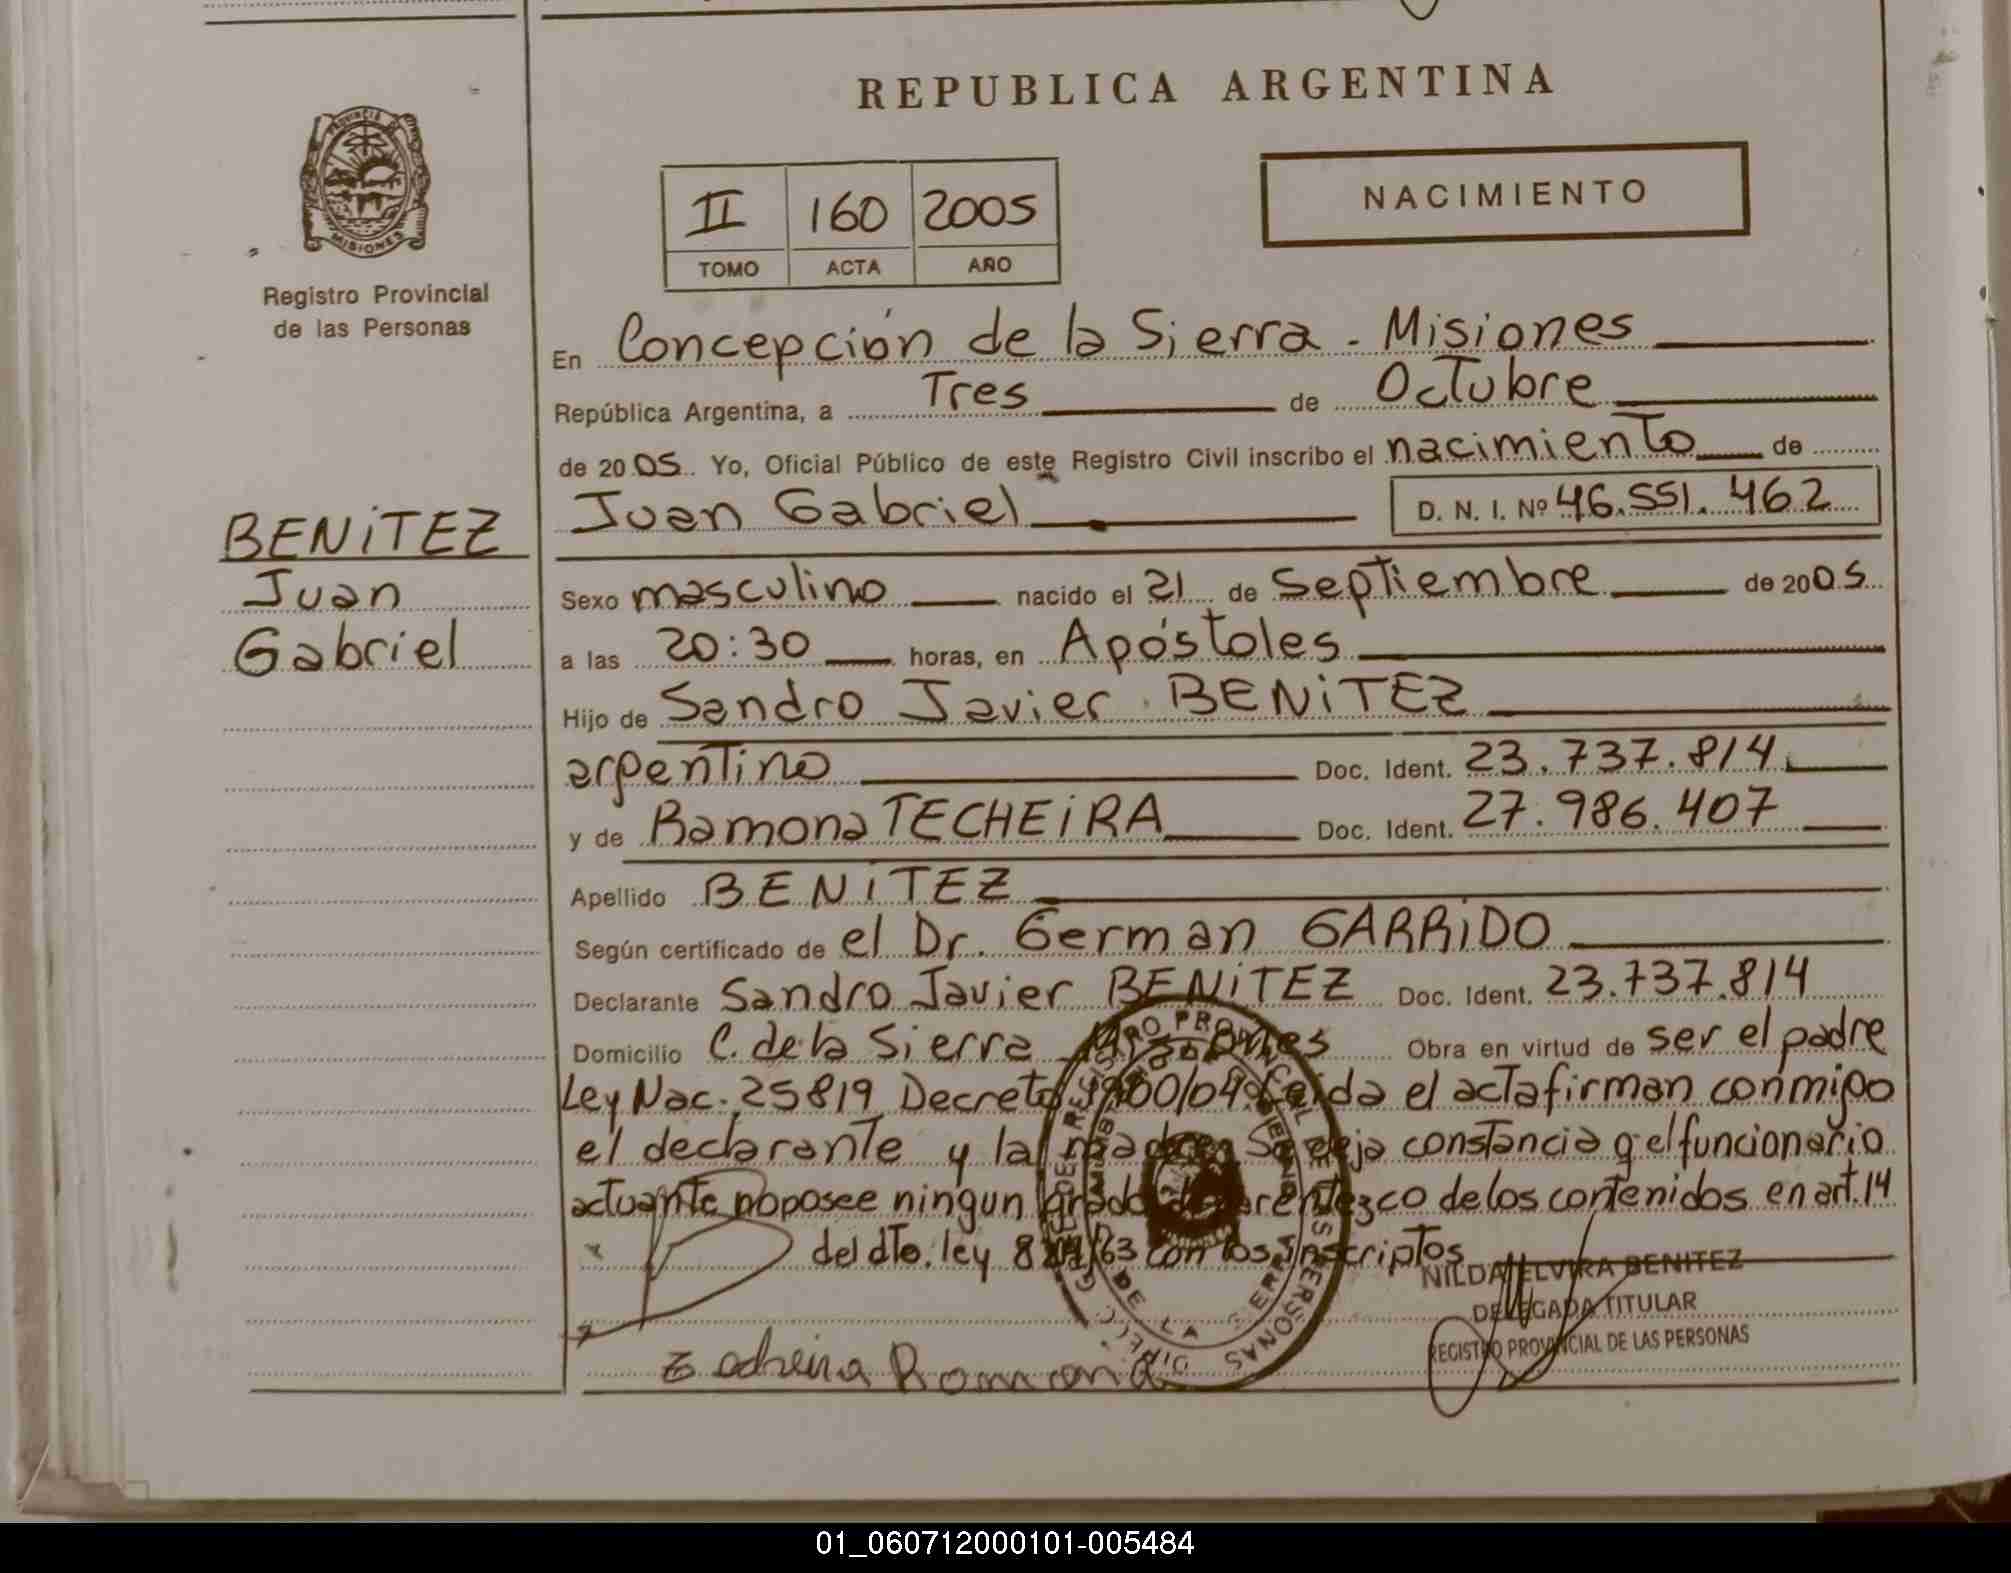 REPUBLICA ARGENTINA
PROVINCIA DE MISIONES
Registro Provincial
de las Personas
II 160 2005
TOMO ACTA AÑO
NACIMIENTO
En Concepción de la Sierra - Misiones
República Argentina, a Tres de Octubre
de 2005 Yo, Oficial Público de este Registro Civil inscribo el nacimiento de
Juan Gabriel D. N. I. Nº 46.551.462
BENITEZ
Juan
Gabriel
Sexo masculino nacido el 21 de Septiembre de 2005
a las 20:30 horas, en Apóstoles
Hijo de Sandro Javier BENITEZ
argentino Doc. Ident. 23.737.814
y de Ramona TECHEIRA Doc. Ident. 27.986.407
Apellido BENITEZ
Según certificado de el Dr. German GARRIDO
Declarante Sandro Javier BENITEZ Doc. Ident. 23.737.814
Domicilio C. de la Sierra Misiones Obra en virtud de ser el padre
Ley Nac. 25819 Decreto 1900/04 Leida el acta firman conmigo
el declarante y la madre Se deja constancia q el funcionario
actuante no posee ningun grado de parentezco de los contenidos en art. 14
del dto. ley con los Inscriptos
NILDA ELVIRA BENITEZ
DELEGADA TITULAR
REGISTRO PROVINCIAL DE LAS PERSONAS
Ramona
DE LA SIERRA
01_060712000101-005484